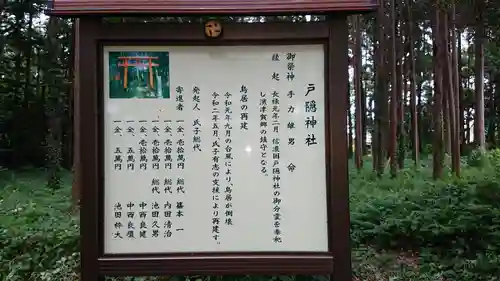 戸隠神社
御祭神　手力雄命
縁起　長禄元年二月　信濃国戸隠神社の御分霊を奉祀
し濱津賀郷の鎮守となる。
鳥居の再建
令和元年九月の台風により、鳥居が倒壊
令和二年五月、氏子有志の支援により再建す。
発起人　氏子総代
寄進者　一金、壱拾萬円　総代　篠本一
一金、壱拾萬円　総代　内田清治
一金、壱拾萬円　総代　池田久男
一金、壱拾萬円　中西良健
一金、五萬円　中西良廣
一金、五萬円　池田梅大